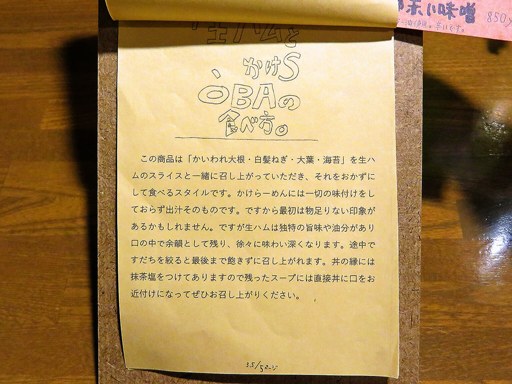 生ハムと
かけS
ÒBAの
食べ方。
この商品は「かいわれ大根・白髪ねぎ・大葉・海苔」を生ハ
ムのスライスと一緒に召し上がっていただき、それをおかずに
して食べるスタイルです。かけらーめんには一切の味付けをし
ておらず出汁そのものです。ですから最初は物足りない印象
があるかもしれません。ですが生ハムは独特の旨味や油分があり
口の中で余韻として残り、徐々に味わい深くなります。途中で
すだちを絞ると最後まで飽きずに召し上がれます。丼の縁には
抹茶塩をつけてありますので残ったスープには直接丼に口をお
近付けになってぜひお召し上がりください。
赤い味噌 850